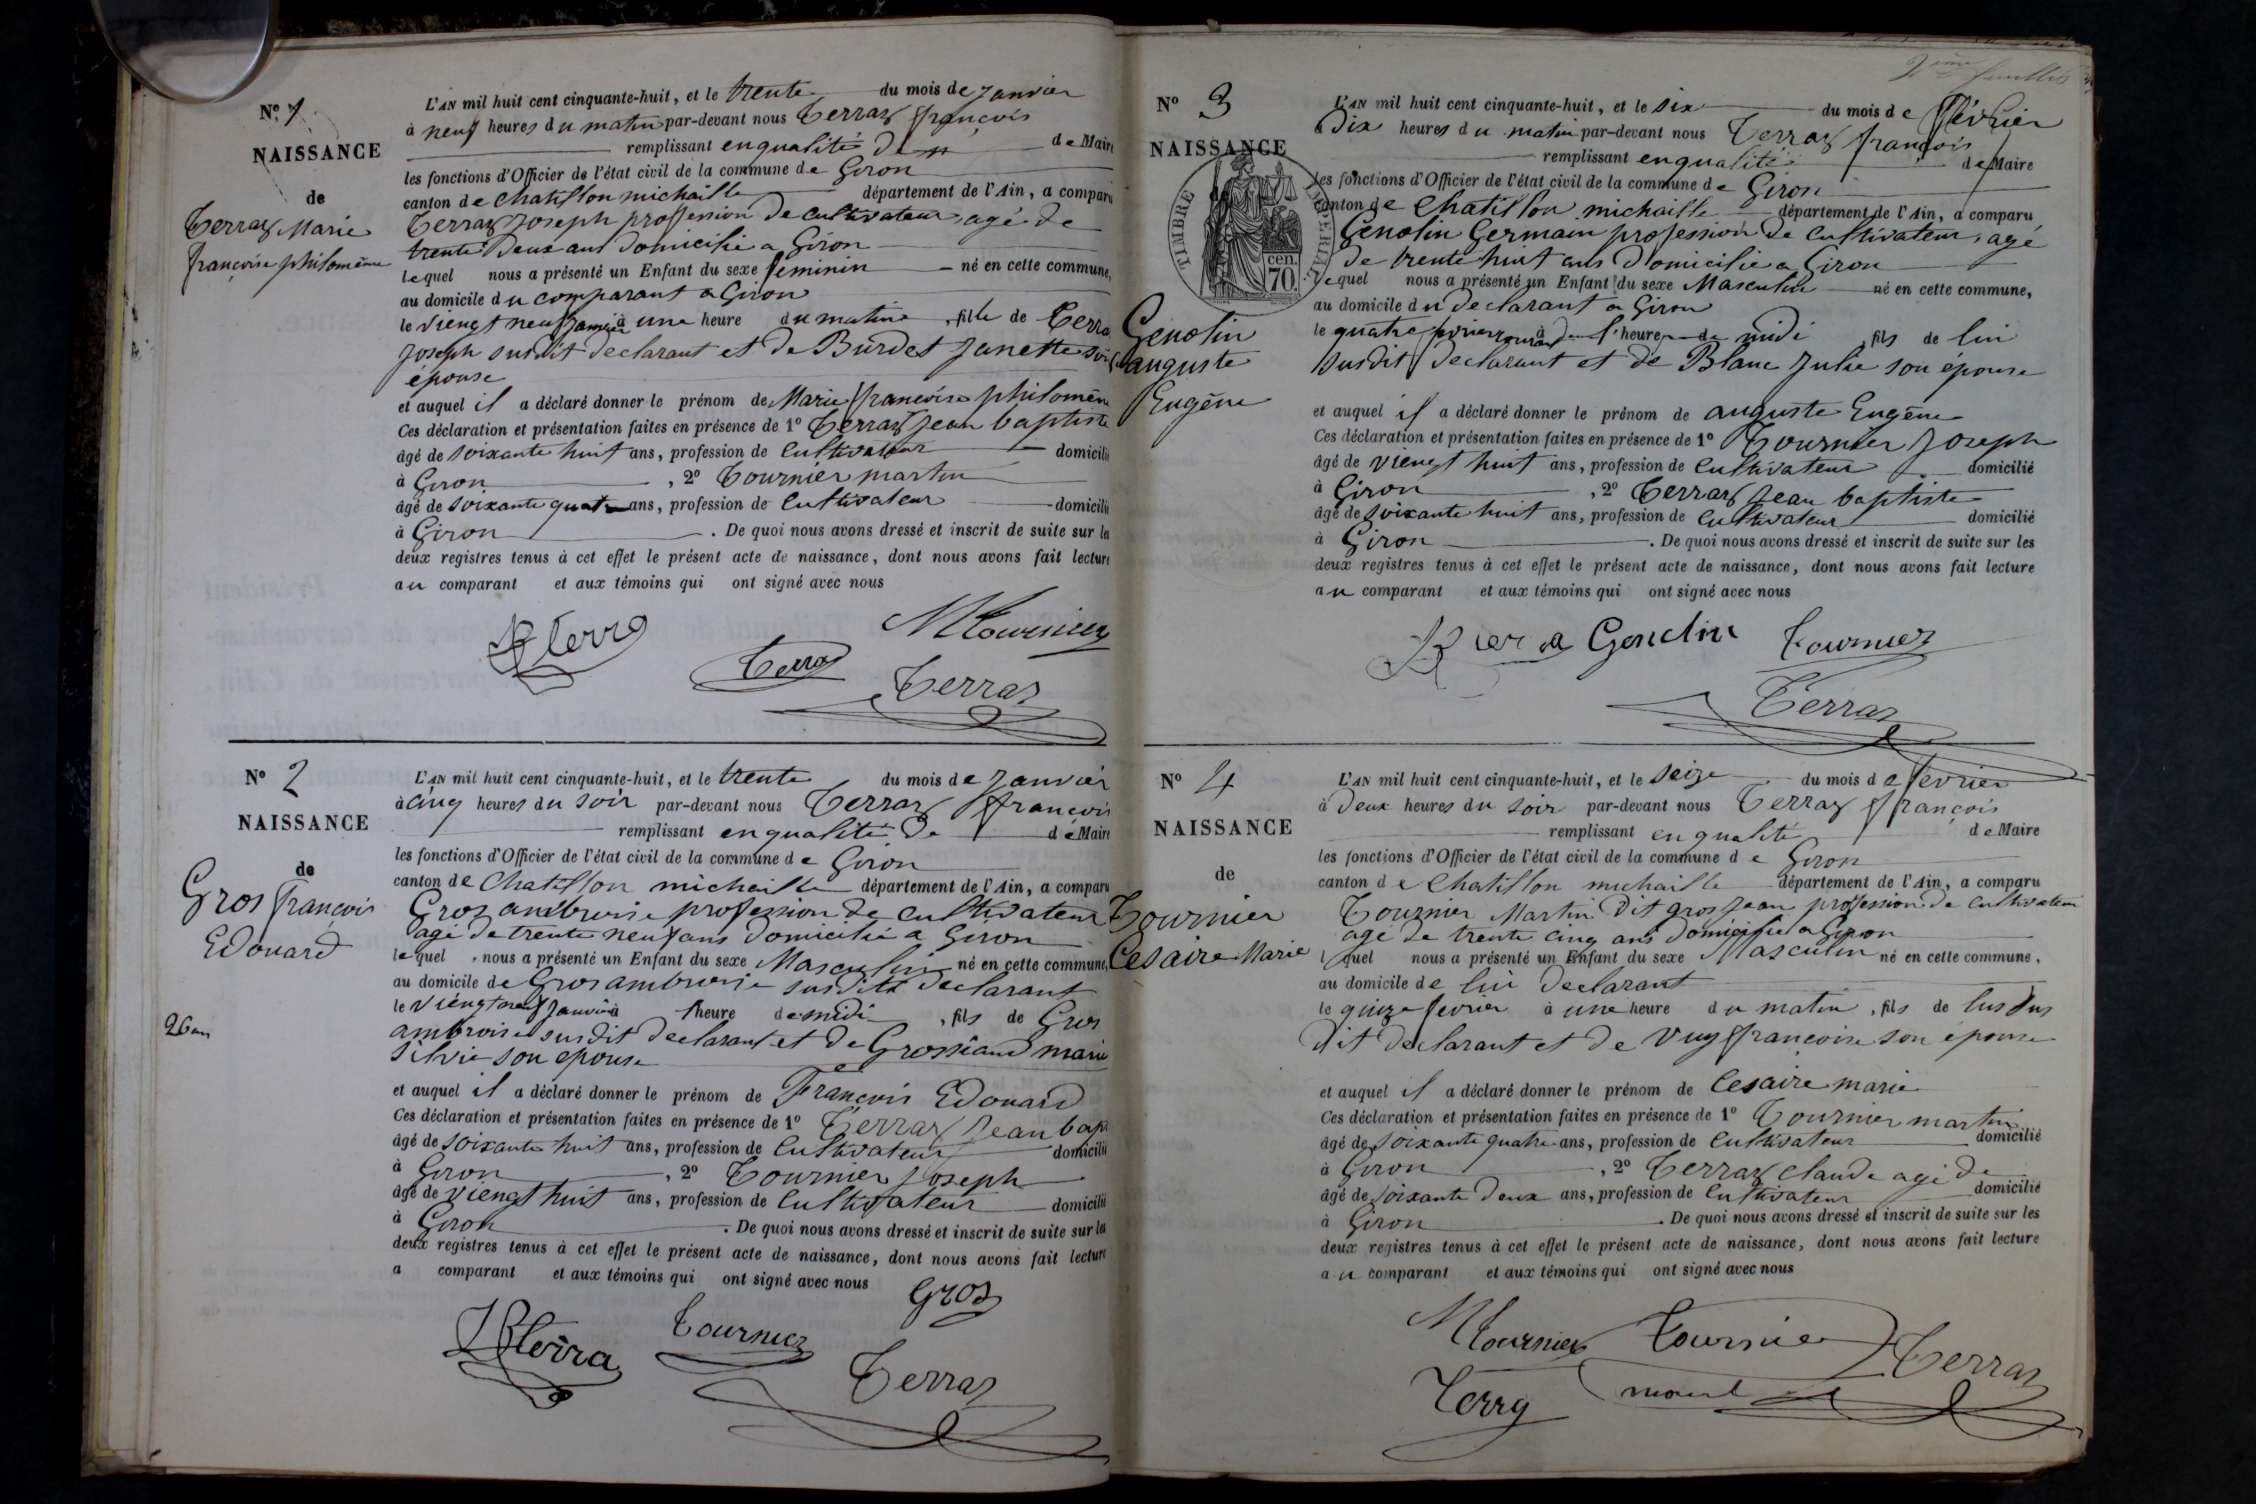 N° 1
NAISSANCE
de
Terraz Marie
françoise philomène
L'AN mil huit cent cinquante-huit, et le trente du mois de Janvier
à neuf heures du matin par-devant nous Terraz françois
remplissant en qualité de de Maire
les fonctions d'Officier de l'état civil de la commune de Giron
canton de Chatillon michaille département de l'Ain, a comparu
Terraz Joseph profession de cultivateur agé de
trente deux ans domicilié a Giron
lequel nous a présenté un Enfant du sexe feminin né en cette commune,
au domicile du comparant a Giron
le viengt neuf janvier à une heure du matin, fille de Terra
Joseph susdit declarant et de Burdet Janette son
épouse
et auquel il a déclaré donner le prénom de Marie françoise philomène
Ces déclaration et présentation faites en présence de 1° Terraz Jean baptiste
âgé de soixante huit ans, profession de Cultivateur domicilié
à Giron, 2° Tournier martin
âgé de soixante quatre ans, profession de Cultivateur domicilié
à Giron. De quoi nous avons dressé et inscrit de suite sur la
deux registres tenus à cet effet le présent acte de naissance, dont nous avons fait lecture
au comparant et aux témoins qui ont signé avec nous
MTournier
Terraz
N° 2
NAISSANCE
de
Gros françois
Edouard
26 an
L'AN mil huit cent cinquante-huit, et le trente du mois de Janvier
à cinq heures du soir par-devant nous Terraz françois
remplissant en qualité de de Maire
les fonctions d'Officier de l'état civil de la commune de Giron
canton de Chatillon michaille département de l'Ain, a comparu
Gros ambroise profession de cultivateur
agé de trente neuf ans domicilié a Giron
lequel nous a présenté un Enfant du sexe Masculin né en cette commune,
au domicile de Gros ambroise susdit declarant
le viengt neuf janvier à l'heure de midi, fils de Gros
ambroise susdit declarant et de Grossiand marie
Silvie son epouse
et auquel il a déclaré donner le prénom de François Edouard
Ces déclaration et présentation faites en présence de 1° Terraz Jean bapt
âgé de soixante huit ans, profession de Cultivateur domicilié
à Giron, 2° Tournier Joseph
âgé de viengt huit ans, profession de Cultivateur domicilié
à Giron. De quoi nous avons dressé et inscrit de suite sur les
deux registres tenus à cet effet le présent acte de naissance, dont nous avons fait lecture
a comparant et aux témoins qui ont signé avec nous
Gros
JBterra Tournier
Terraz
2ème feuillet
N° 3
NAISSANCE
TIMBRE IMPERIAL
cen.
70.
Genolin
auguste
Eugène
L'AN mil huit cent cinquante-huit, et le six du mois de février
à Dix heures du matin par-devant nous Terraz françois
remplissant en qualité de Maire
les fonctions d'Officier de l'état civil de la commune de Giron
canton de Chatillon michaille département de l'Ain, a comparu
Genolin Germain profession de Cultivateur, agé
de trente huit ans domicilié a Giron
lequel nous a présenté un Enfant du sexe Masculin né en cette commune,
au domicile du declarant a Giron
le quatre fevrier à l'heure de midi, fils de lui
susdit declarant et de Blanc Julie son épouse
et auquel il a déclaré donner le prénom de auguste Eugène
Ces déclaration et présentation faites en présence de 1° Tournier Joseph
âgé de viengt huit ans, profession de Cultivateur domicilié
à Giron, 2° Terraz Jean baptiste
âgé de soixante huit ans, profession de Cultivateur domicilié
à Giron. De quoi nous avons dressé et inscrit de suite sur les
deux registres tenus à cet effet le présent acte de naissance, dont nous avons fait lecture
au comparant et aux témoins qui ont signé avec nous
Genolin Tournier
Terraz
N° 4
NAISSANCE
de
Tournier
Cesaire Marie
L'AN mil huit cent cinquante-huit, et le seize du mois de fevrier
à deux heures du soir par-devant nous Terraz françois
remplissant en qualité de Maire
les fonctions d'Officier de l'état civil de la commune de Giron
canton de Chatillon michaille département de l'Ain, a comparu
Tournier Martin dit gros Jean profession de cultivateur
agé de trente cinq ans domicilié a Giron
lequel nous a présenté un Enfant du sexe Masculin né en cette commune,
au domicile de lui declarant
le quinze fevrier à une heure du matin, fils de lusdus
dit declarant et de Vuy françoise son épouse
et auquel il a déclaré donner le prénom de Cesaire marie
Ces déclaration et présentation faites en présence de 1° Tournier martin
âgé de soixante quatre ans, profession de Cultivateur domicilié
à Giron, 2° Terraz claude agé de
âgé de soixante deux ans, profession de Cultivateur domicilié
à Giron. De quoi nous avons dressé et inscrit de suite sur les
deux registres tenus à cet effet le présent acte de naissance, dont nous avons fait lecture
au comparant et aux témoins qui ont signé avec nous
MTournier Tournier Terraz